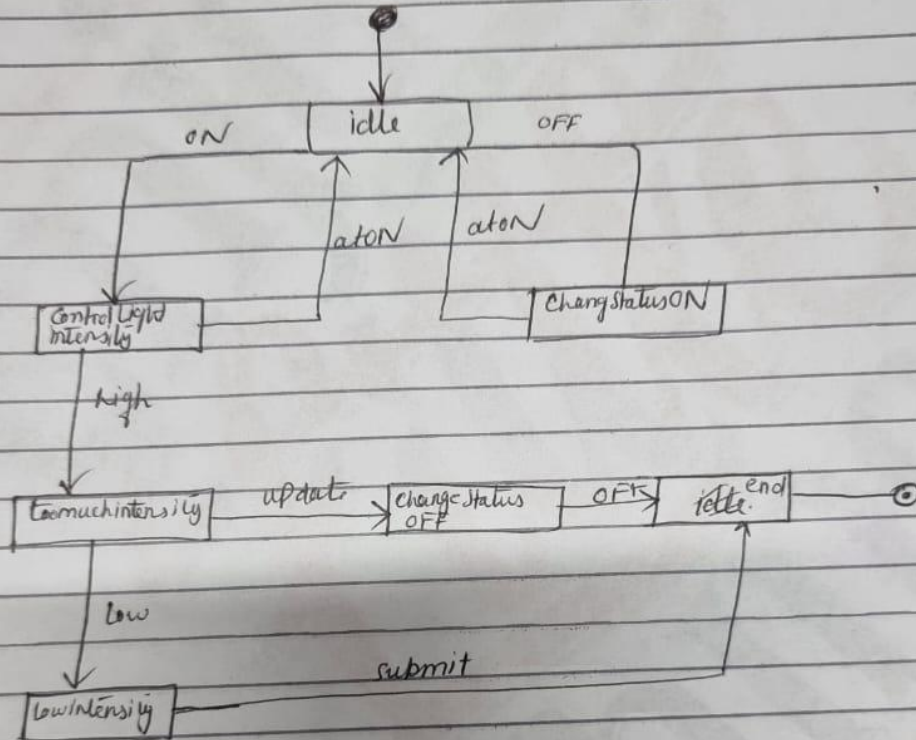 idle
ON
OFF
atoN
atoN
Control Light
intensity
ChangstatusON
high
toomuchintensity
update
Change status
OFF
OFF
end
Low
submit
lowintensity